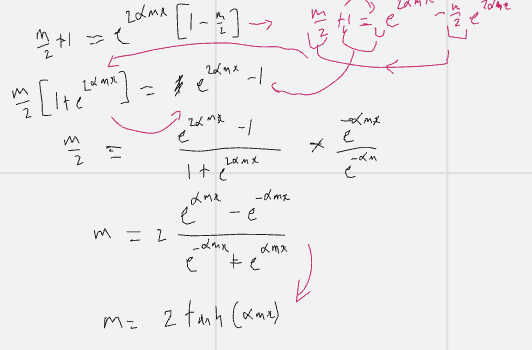 m/2 + 1 = e^{2αmx} [1 - m/2] → m/2 + 1 = e^{2αmx} - m/2 e^{2αmx}
m/2 [1 + e^{2αmx}] = e^{2αmx} - 1
m/2 = (e^{2αmx} - 1)/(1 + e^{2αmx}) × e^{-αmx}/e^{-αm}
m = 2 (e^{αmx} - e^{-αmx})/(e^{-αmx} + e^{αmx})
m = 2 tanh (αmx)